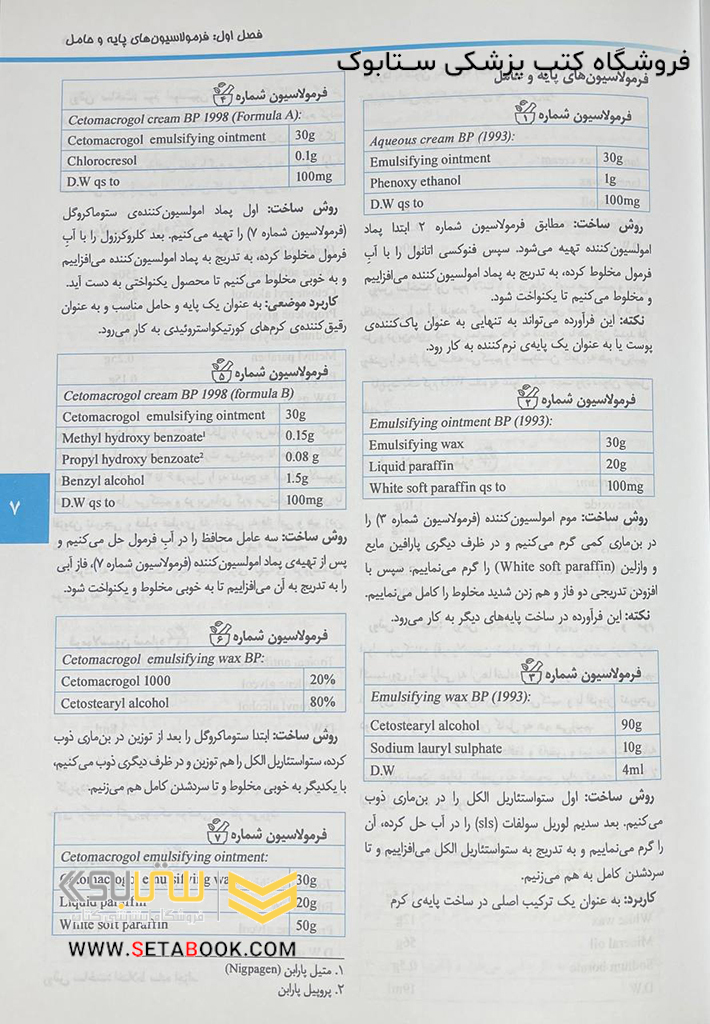 فصل اول: فرمولاسیون‌های پایه و حامل
فروشگاه کتب پزشکی ستابوک
فرمولاسیون‌های پایه و حامل
فرمولاسیون شماره ۱
Aqueous cream BP (1993):
Emulsifying ointment 30g
Phenoxy ethanol 1g
D.W qs to 100mg
روش ساخت: مطابق فرمولاسیون شماره ۲ ابتدا پماد
امولسیون‌کننده تهیه می‌شود. سپس فنوکسی اتانول را با آبِ
فرمول مخلوط کرده، به تدریج به پماد امولسیون‌کننده می‌افزاییم
و مخلوط می‌کنیم تا یکنواخت شود.
نکته: این فرآورده می‌تواند به تنهایی به عنوان پاک‌کننده‌ی
پوست یا به عنوان یک پایه‌ی نرم‌کننده به کار رود.
فرمولاسیون شماره ۲
Emulsifying ointment BP (1993):
Emulsifying wax 30g
Liquid paraffin 20g
White soft paraffin qs to 100mg
روش ساخت: موم امولسیون‌کننده (فرمولاسیون شماره ۳) را
در بن‌ماری کمی گرم می‌کنیم و در ظرف دیگری پارافین مایع
و وازلین (White soft paraffin) را گرم می‌نماییم، سپس با
افزودن تدریجی دو فاز و هم زدن شدید مخلوط را کامل می‌نماییم.
نکته: این فرآورده در ساخت پایه‌های دیگر به کار می‌رود.
فرمولاسیون شماره ۳
Emulsifying wax BP (1993):
Cetostearyl alcohol 90g
Sodium lauryl sulphate 10g
D.W 4ml
روش ساخت: اول ستواستئاریل الکل را در بن‌ماری ذوب
می‌کنیم. بعد سدیم لوریل سولفات (sls) را در آب حل کرده، آن
را گرم می‌نماییم و به تدریج به ستواستئاریل الکل می‌افزاییم و تا
سردشدن کامل به هم می‌زنیم.
کاربرد: به عنوان یک ترکیب اصلی در ساخت پایه‌ی کرم
فرمولاسیون شماره ۴
Cetomacrogol cream BP 1998 (Formula A):
Cetomacrogol emulsifying ointment 30g
Chlorocresol 0.1g
D.W qs to 100mg
روش ساخت: اول پماد امولسیون‌کننده‌ی ستوماکروگل
(فرمولاسیون شماره ۷) را تهیه می‌کنیم. بعد کلروکرزول را با آبِ
فرمول مخلوط کرده، به تدریج به پماد امولسیون‌کننده می‌افزاییم
و به خوبی مخلوط می‌کنیم تا محصول یکنواختی به دست آید.
کاربرد موضعی: به عنوان یک پایه و حامل مناسب و به عنوان
رقیق‌کننده‌ی کرم‌های کورتیکواستروئیدی به کار می‌رود.
فرمولاسیون شماره ۵
Cetomacrogol cream BP 1998 (formula B)
Cetomacrogol emulsifying ointment 30g
Methyl hydroxy benzoate¹ 0.15g
Propyl hydroxy benzoate² 0.08 g
Benzyl alcohol 1.5g
D.W qs to 100mg
روش ساخت: سه عامل محافظ را در آبِ فرمول حل می‌کنیم و
پس از تهیه‌ی پماد امولسیون‌کننده (فرمولاسیون شماره ۷)، فاز آبی
را به تدریج به آن می‌افزاییم تا به خوبی مخلوط و یکنواخت شود.
فرمولاسیون شماره ۶
Cetomacrogol emulsifying wax BP:
Cetomacrogol 1000 20%
Cetostearyl alcohol 80%
روش ساخت: ابتدا ستوماکروگل را بعد از توزین در بن‌ماری ذوب
کرده، ستواستئاریل الکل را هم توزین و در ظرف دیگری ذوب می‌کنیم،
با یکدیگر به خوبی مخلوط و تا سردشدن کامل هم می‌زنیم.
فرمولاسیون شماره ۷
Cetomacrogol emulsifying ointment:
Cetomacrogol emulsifying wax 30g
Liquid paraffin 20g
White soft paraffin 50g
ستابوک
فروشگاه اینترنتی کتاب
WWW.SETABOOK.COM
۱. متیل پارابن (Nigpagen)
۲. پروپیل پارابن
۷